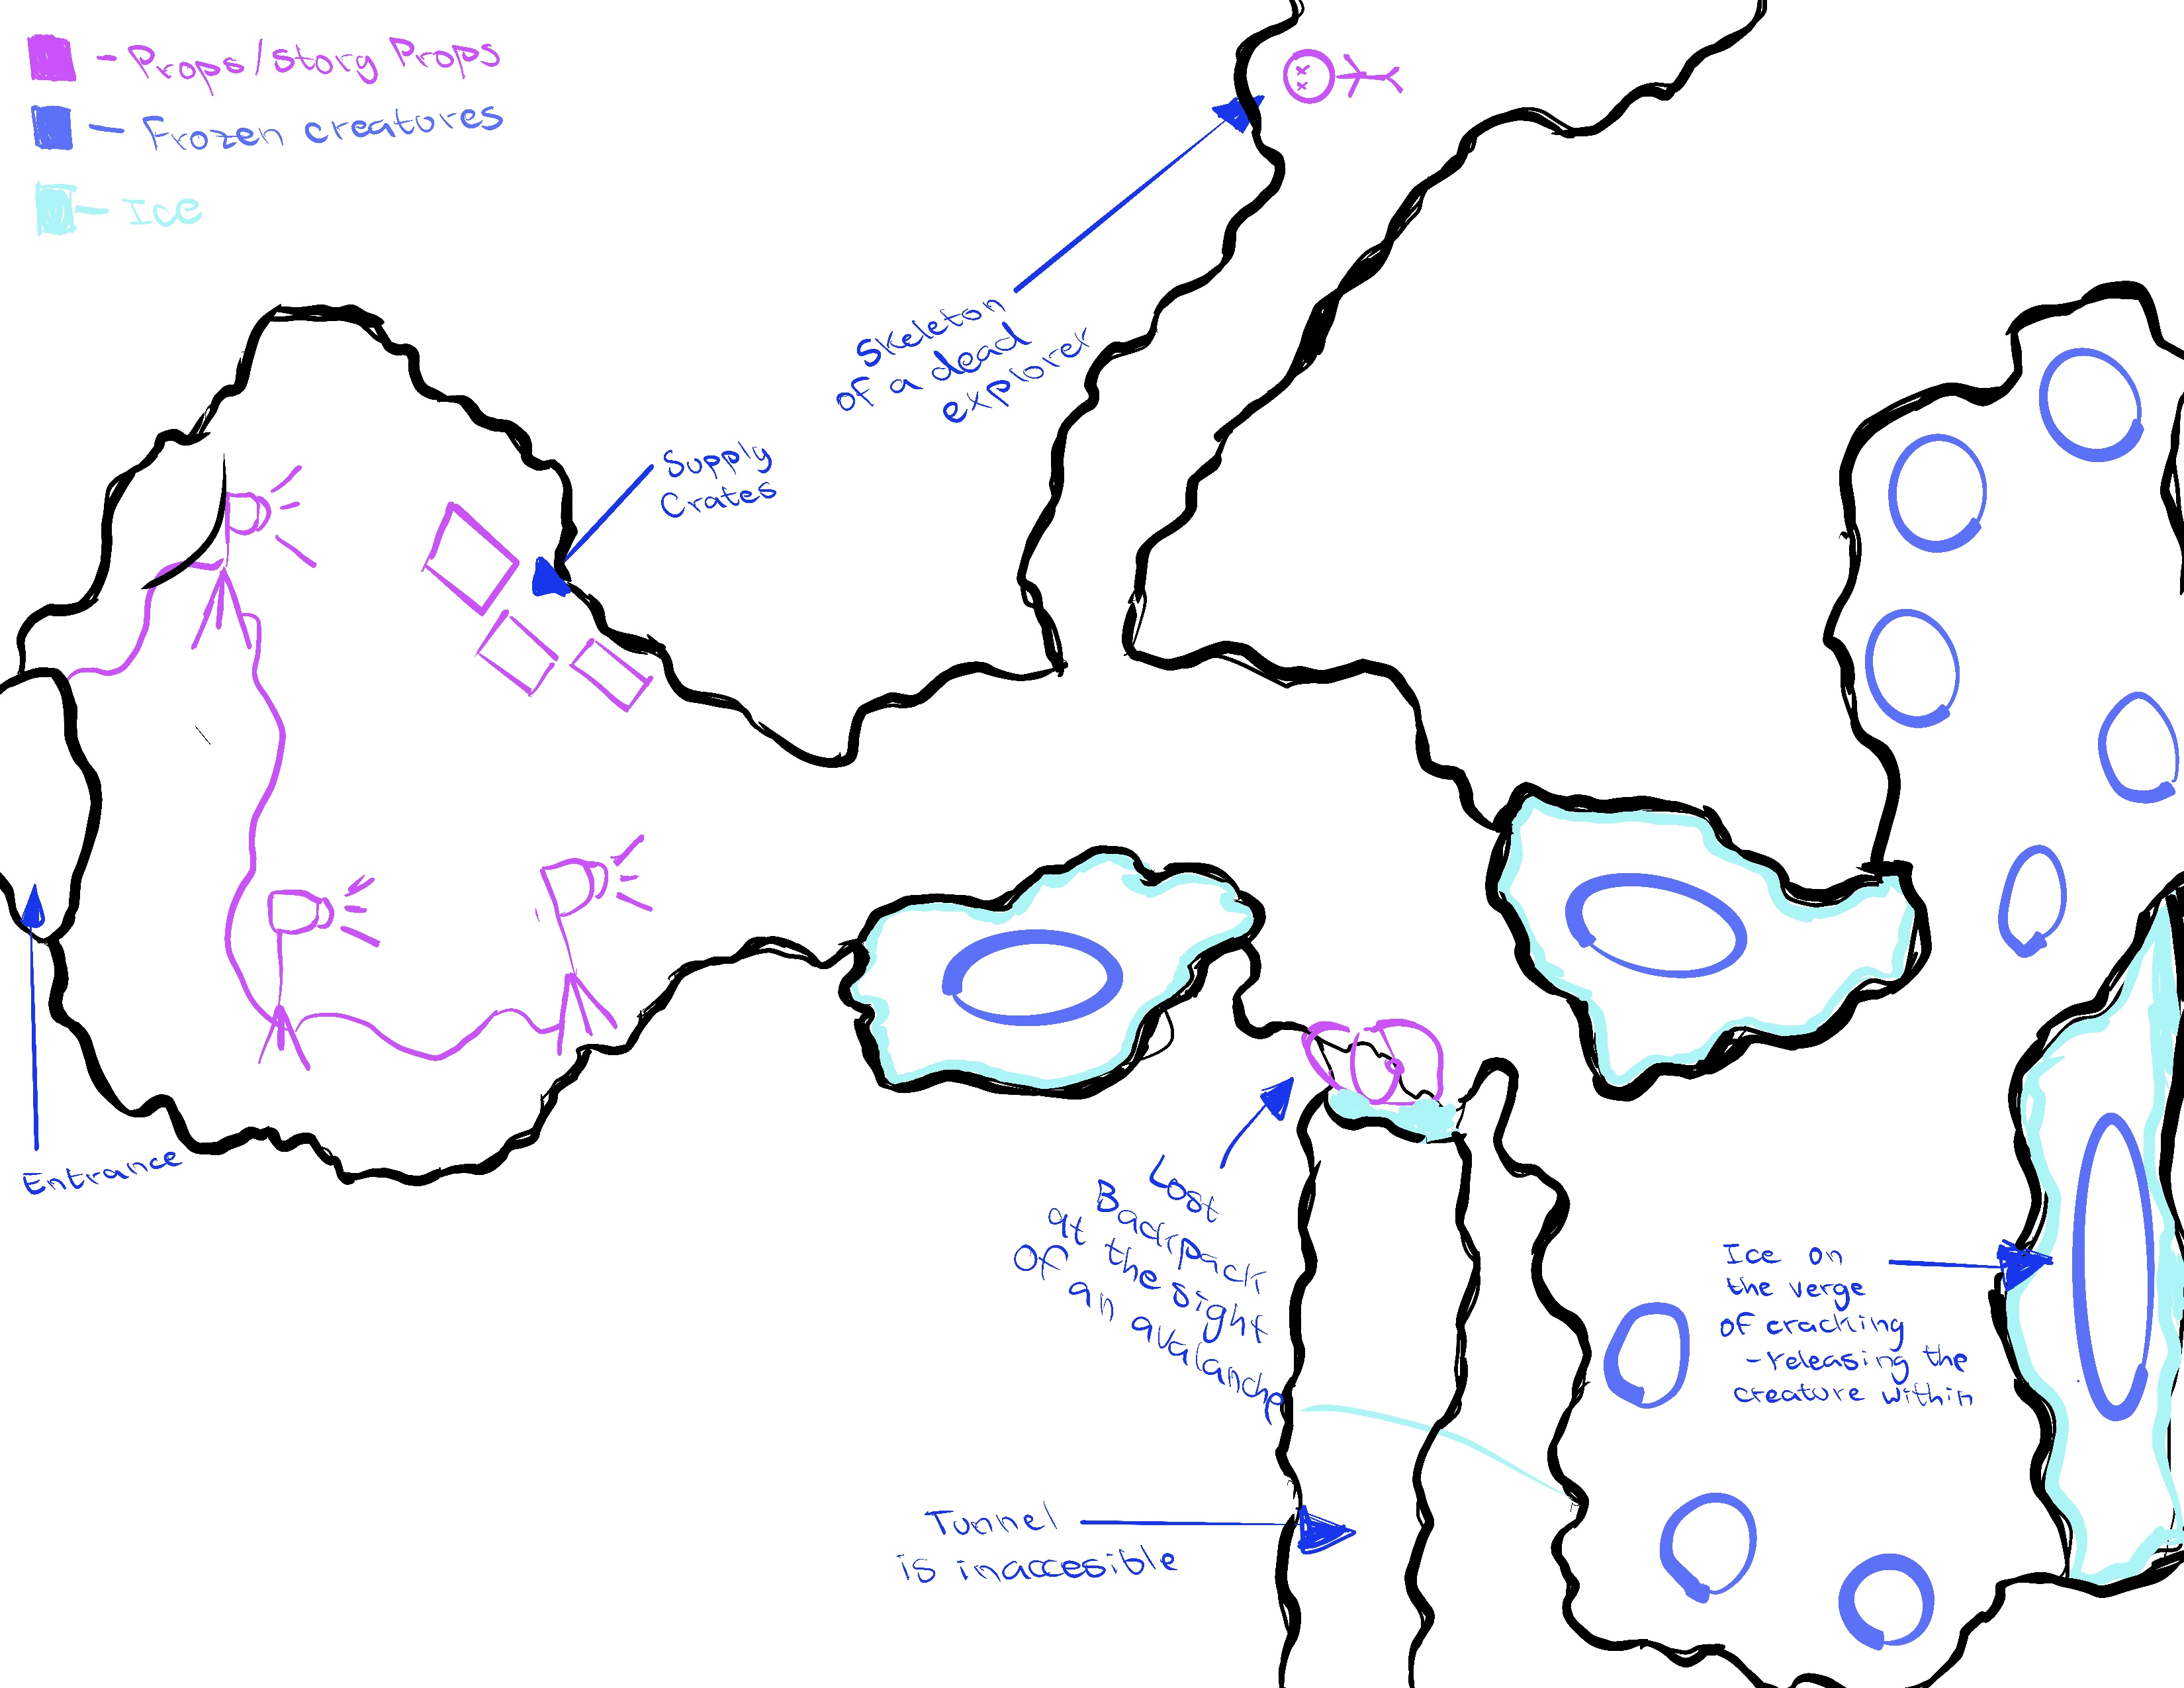 - Props/story Props
- Frozen creatures
- Ice
Skeleton
of a dead
explorer
Supply
Crates
Entrance
Lost
Backpack
at the sight
Of an avalanche
Ice on
the verge
of cracking
-releasing the
creature within
Tunnel
is inaccesible